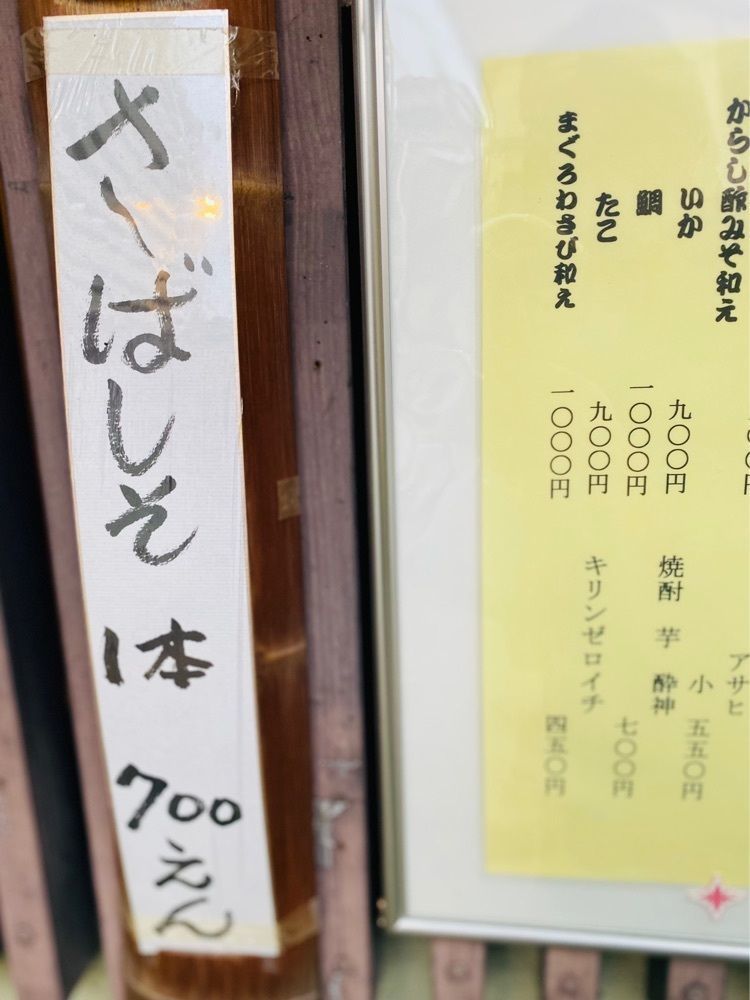 さばしそ 1本 700えん
からし酢みそ和え
いか 九〇〇円
鯛 一〇〇〇円
たこ 九〇〇円
まぐろわさび和え 一〇〇〇円
アサヒ
小 五五〇円
焼酎 芋 酔神 七〇〇円
キリンゼロイチ 四五〇円